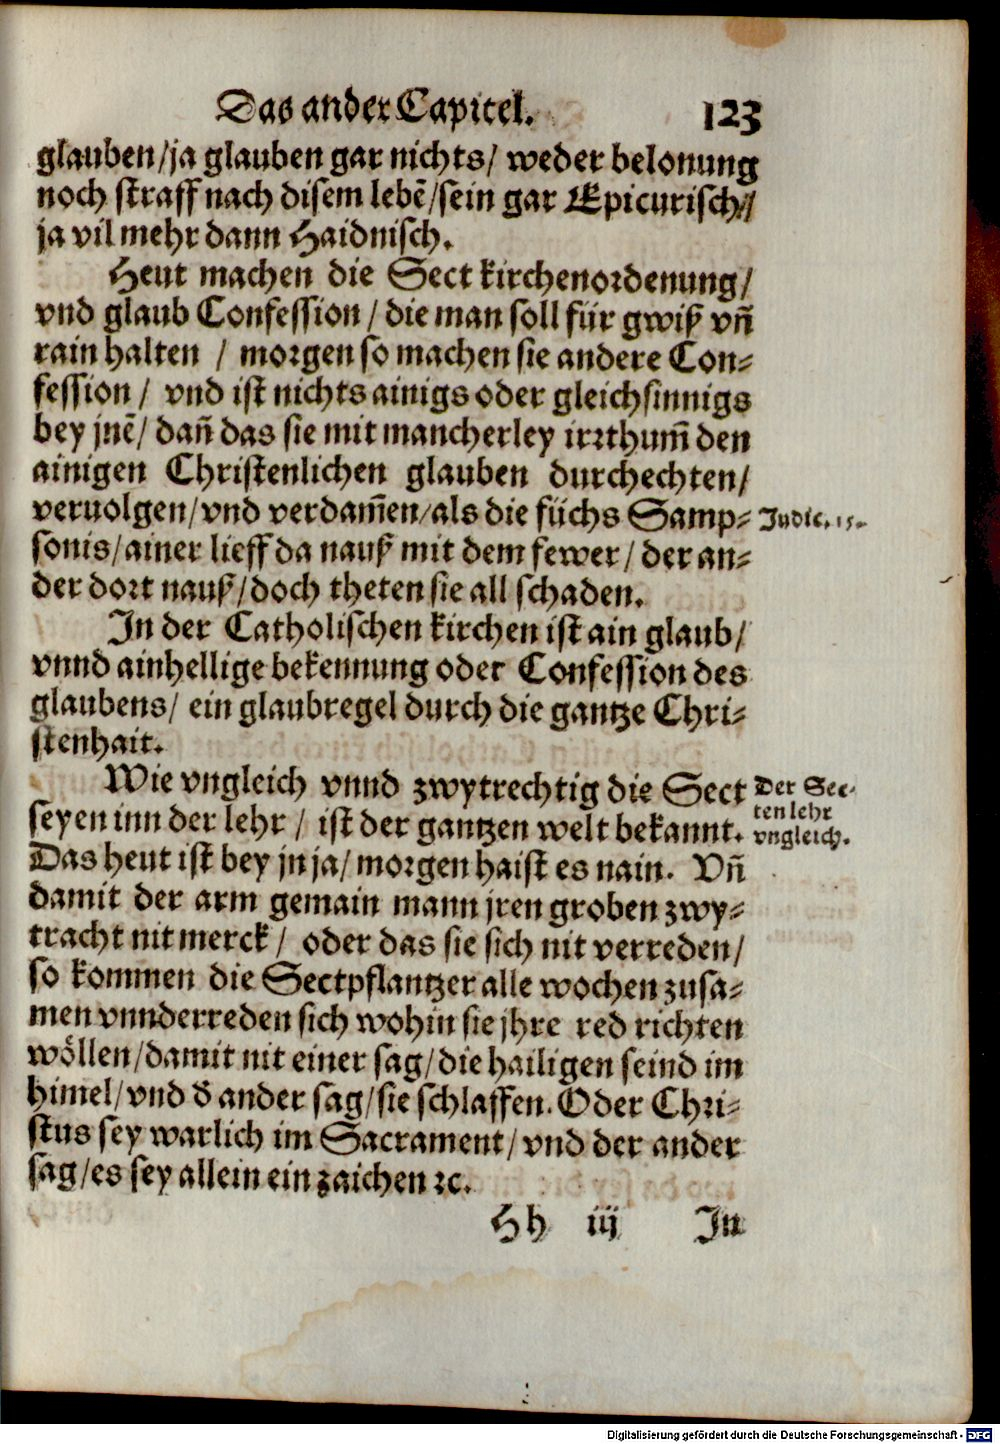 Das ander Capitel. 123
glauben/ja glauben gar nichts/ weder belonung
noch straff nach disem lebẽ/sein gar Epicurisch/
ja vil mehr dann Haidnisch.
Heut machen die Sect kirchenordenung/
vnd glaub Confession / die man soll für gwiß vñ
rain halten / morgen so machen sie andere Con-
fession / vnd ist nichts ainigs oder gleichsinnigs
bey jnẽ/ dañ das sie mit mancherley irrthum̃ den
ainigen Christenlichen glauben durchechten/
veruolgen/vnd verdam̃en/als die füchs Samp-
Judic. 15.
sonis/ainer lieff da nauß mit dem fewer/ der an-
der dort nauß/doch theten sie all schaden.
In der Catholischen kirchen ist ain glaub/
vnnd ainhellige bekennung oder Confession des
glaubens/ ein glaubregel durch die gantze Chri-
stenhait.
Wie vngleich vnnd zwytrechtig die Sect
seyen inn der lehr / ist der gantzen welt bekannt.
Der Sec-
ten lehr
vngleich.
Das heut ist bey jn ja/ morgen haist es nain. Vñ
damit der arm gemain mann jren groben zwy-
tracht nit merck / oder das sie sich nit verreden/
so kommen die Sectpflantzer alle wochen zusa-
men vnnderreden sich wohin sie jhre red richten
wöllen/damit nit einer sag/die hailigen seind im
himel/vnd d̕ ander sag/sie schlaffen. Oder Chri-
stus sey warlich im Sacrament/vnd der ander
sag/es sey allein ein zaichen ꝛc.
Hh iij In
Digitalisierung gefördert durch die Deutsche Forschungsgemeinschaft - DFG